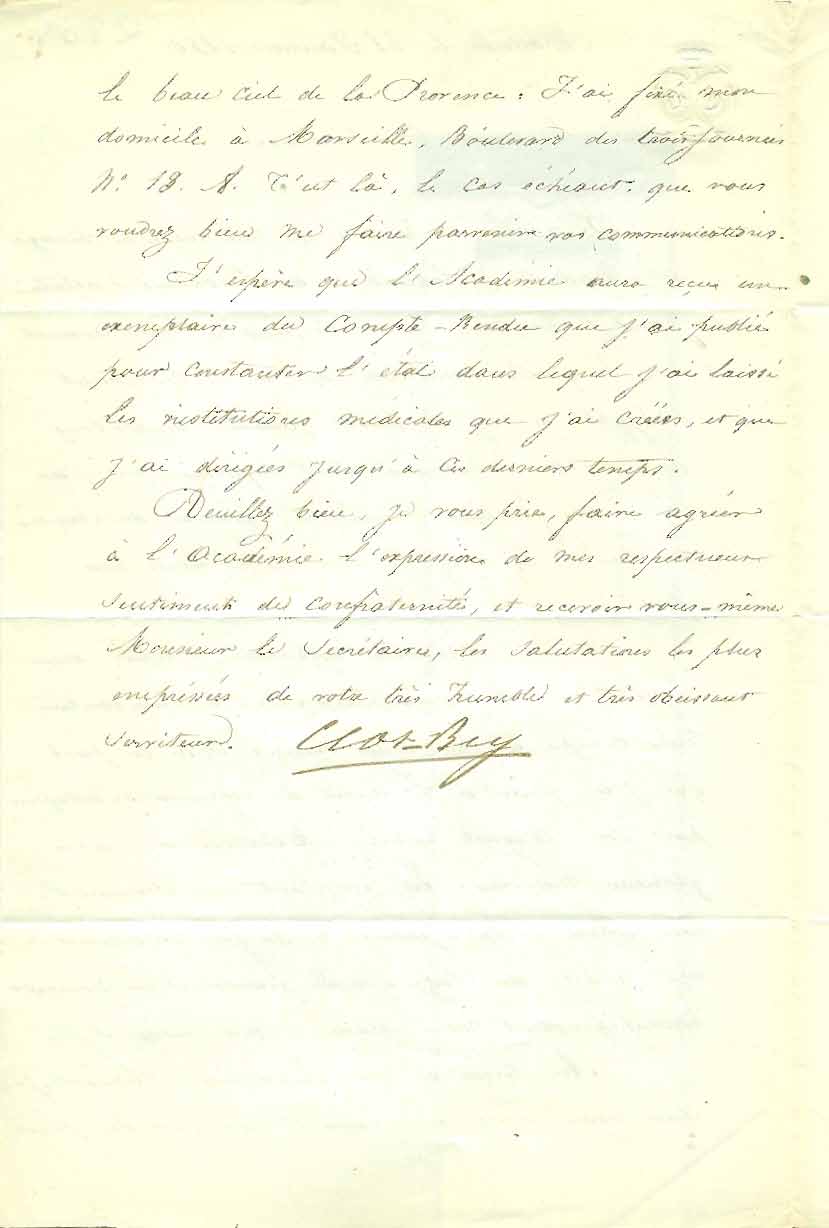 le beau ciel de la Provence. J'ai fixé mon
domicile à Marseille, Boulevard des trois journées
N.º 18. A. C'est là, le cas échéant, que vous
voudrez bien me faire parvenir vos communications.
J'espère que l'Académie aura reçu un
exemplaire du Compte-Rendu que j'ai publié
pour constater l'état dans lequel j'ai laissé
les institutions médicales que j'ai créées, et que
j'ai dirigées jusqu'à ces derniers temps.
Veuillez bien, je vous prie, faire agréer
à l'Académie l'expression de mes respectueux
sentiments de confraternité, et recevoir vous-même
Monsieur le Secrétaire, les salutations les plus
empressées de votre très humble et très obéissant
serviteur. Clot-Bey